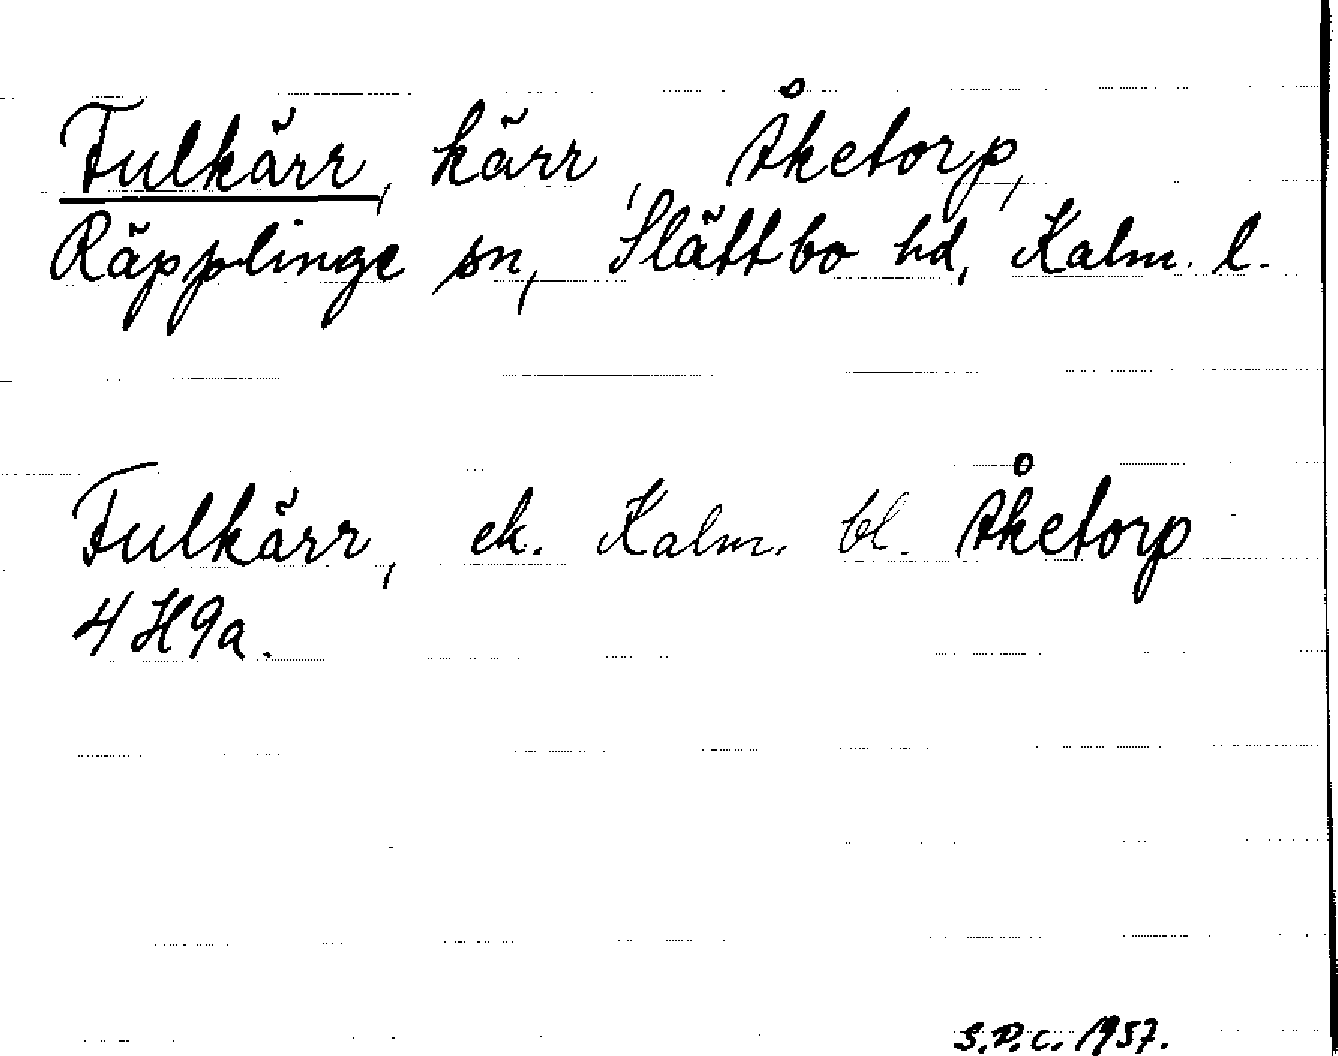 Fulkärr, kärr, Åketorp,
Räpplinge sn, Slättbo hd, Kalm. l.
Fulkärr, ek. Kalm. bl. Åketorp
4 H9a.
S.D.C. 1957.